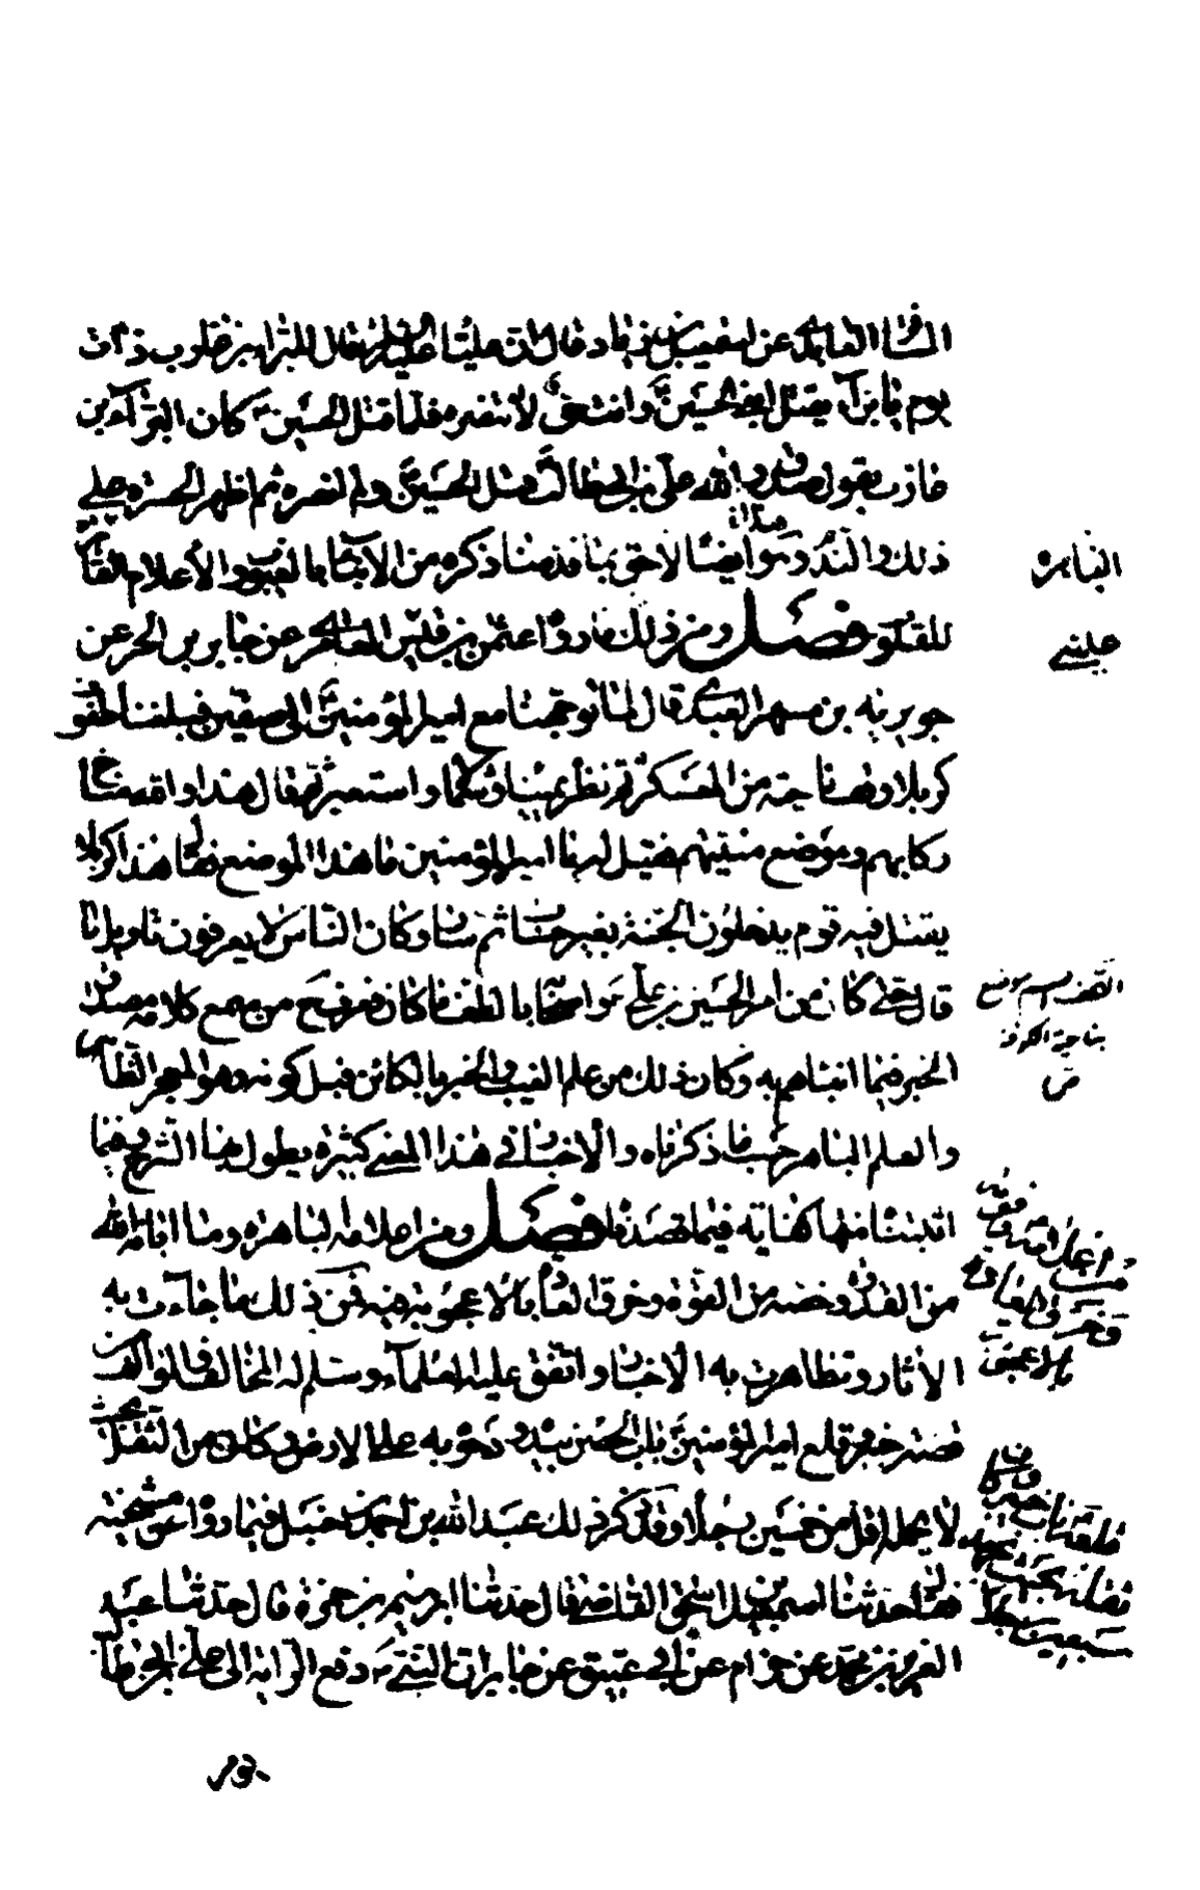 الشافعي عن اسمعيل بن زياد قال ان عليا عليه السلم قال للبراء بن عازب ذات
يوم يا براء يقتل ابني الحسين ع وانت حي لا تنصره فلما قتل الحسين ع كان البراء بن
عازب يقول صدق والله علي بن ابي طالب ع قتل الحسين ع ولم انصره ثم اظهر الحسرة على
ذلك والندم وهذا ايضا لاحق بما قدمنا ذكره من الانباء بالغيوب والأعلام القاهرة
للقلوب فصل ومن ذلك ما رواه عثمن بن قيس العامري عن جابر بن الحر عن
جويرية بن مسهر العبدي قال لما توجهنا مع امير المؤمنين ع الى صفين فبلغنا طفوف
كربلا وقف ناحية من المعسكر ثم نظر يمينا وشمالا واستعبر ثم قال هذا والله مناخ
ركابهم وموضع منيتهم فقيل له يا امير المؤمنين ما هذا الموضع فقال هذا كربلا
يقتل فيه قوم يدخلون الجنة بغير حساب ثم سار وكان الناس لا يعرفون تاويل ما
قال حتى كان من امر الحسين بن علي ع واصحابه بالطف ما كان فعرف ح من سمع كلامه مصداق
الخبر فيما انبأهم به وكان ذلك من علم الغيب والخبر بالكائن قبل كونه وهو المعجز الظاهر
والعلم الباهر حسب ما ذكرناه والاخبار في هذا المعنى كثيرة يطول بها الشرح وفيما
اثبتنا منها كفاية فيما قصدناه فصل ومن اعلامه الباهرة وما ابانه الله
من القدرة وخصه من القوة وخرق العادة بالاعجوبة فيه فمن ذلك ما جاءت به
الآثار وتظاهرت به الاخبار واتفق عليه العلماء وسلم له المخالف والمؤالف من
قصة خيبر وقلع امير المؤمنين ع باب الحصن بيده ودحوه به على الارض وكان من الثقل بحيث
لا يحمله اقل من خمسين رجلا وقد ذكر ذلك عبد الله بن احمد بن حنبل فيما رواه عن مشيخته
فقال حدثنا اسمعيل بن اسحق القاضي قال حدثنا ابرهيم بن حمزة قال حدثنا عبد
العزيز بن محمد عن حزام عن ابي عتيق عن جابر ان النبي ص دفع الراية الى علي
الباهرة
الطف اسم موضع
بناحية الكوفة